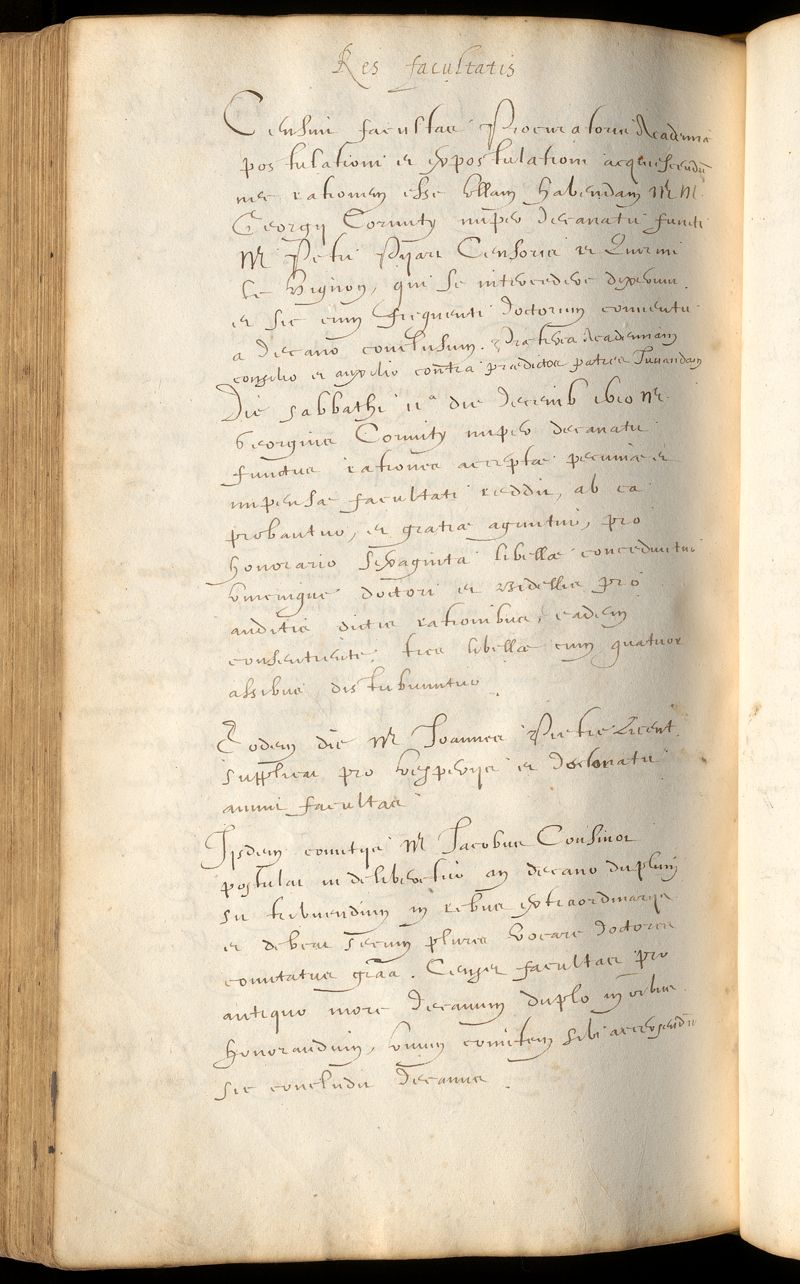 Res facultatis
Censuit facultas Procuratoris Academiæ
postulationi et expostulationi acquiescendū
nec rationem esse ullam habendam Mr M.
Georgij Cornuty nuper decanatu functi
M Petri Pijart Censoris et Quirini
le Vignon, qui se intercedere dixerunt.
et sic cum frequenti doctorum conventu
a decano conclusum. Præterea Academiam
consilio et auxilio contra prædictos patres Juuandam
Die sabbathi 11ª die decemb 1610 Mr.
Georgius Cornuty nuper decanatu
functus rationes acceptæ pecuniæ et
impensæ facultati reddit, ab ea
probantur, et gratiæ aguntur, pro
honorario sexaginta libellæ conceduntur
unicuique doctori et Bidellis pro
auditis dictis rationibus, eadem
consentiente, tres libellæ cum quatuor
assibus distribuuntur.
Eodem die M Joannes Pietre Licent.
supplicat pro vesperijs et doctoratu
annuit facultas
Ijsdem comitijs M Jacobus Cousinot
postulat ut deliberetur an decano duplum
sit tribuendum in rebus extraordinarijs
et debeat secum plures vocare doctores
comitatus grāa. Censet facultas pro
antiquo more decanum duplo in oībus
honorandum, unum comitem sibi accersendū
sic concludit Decanus.